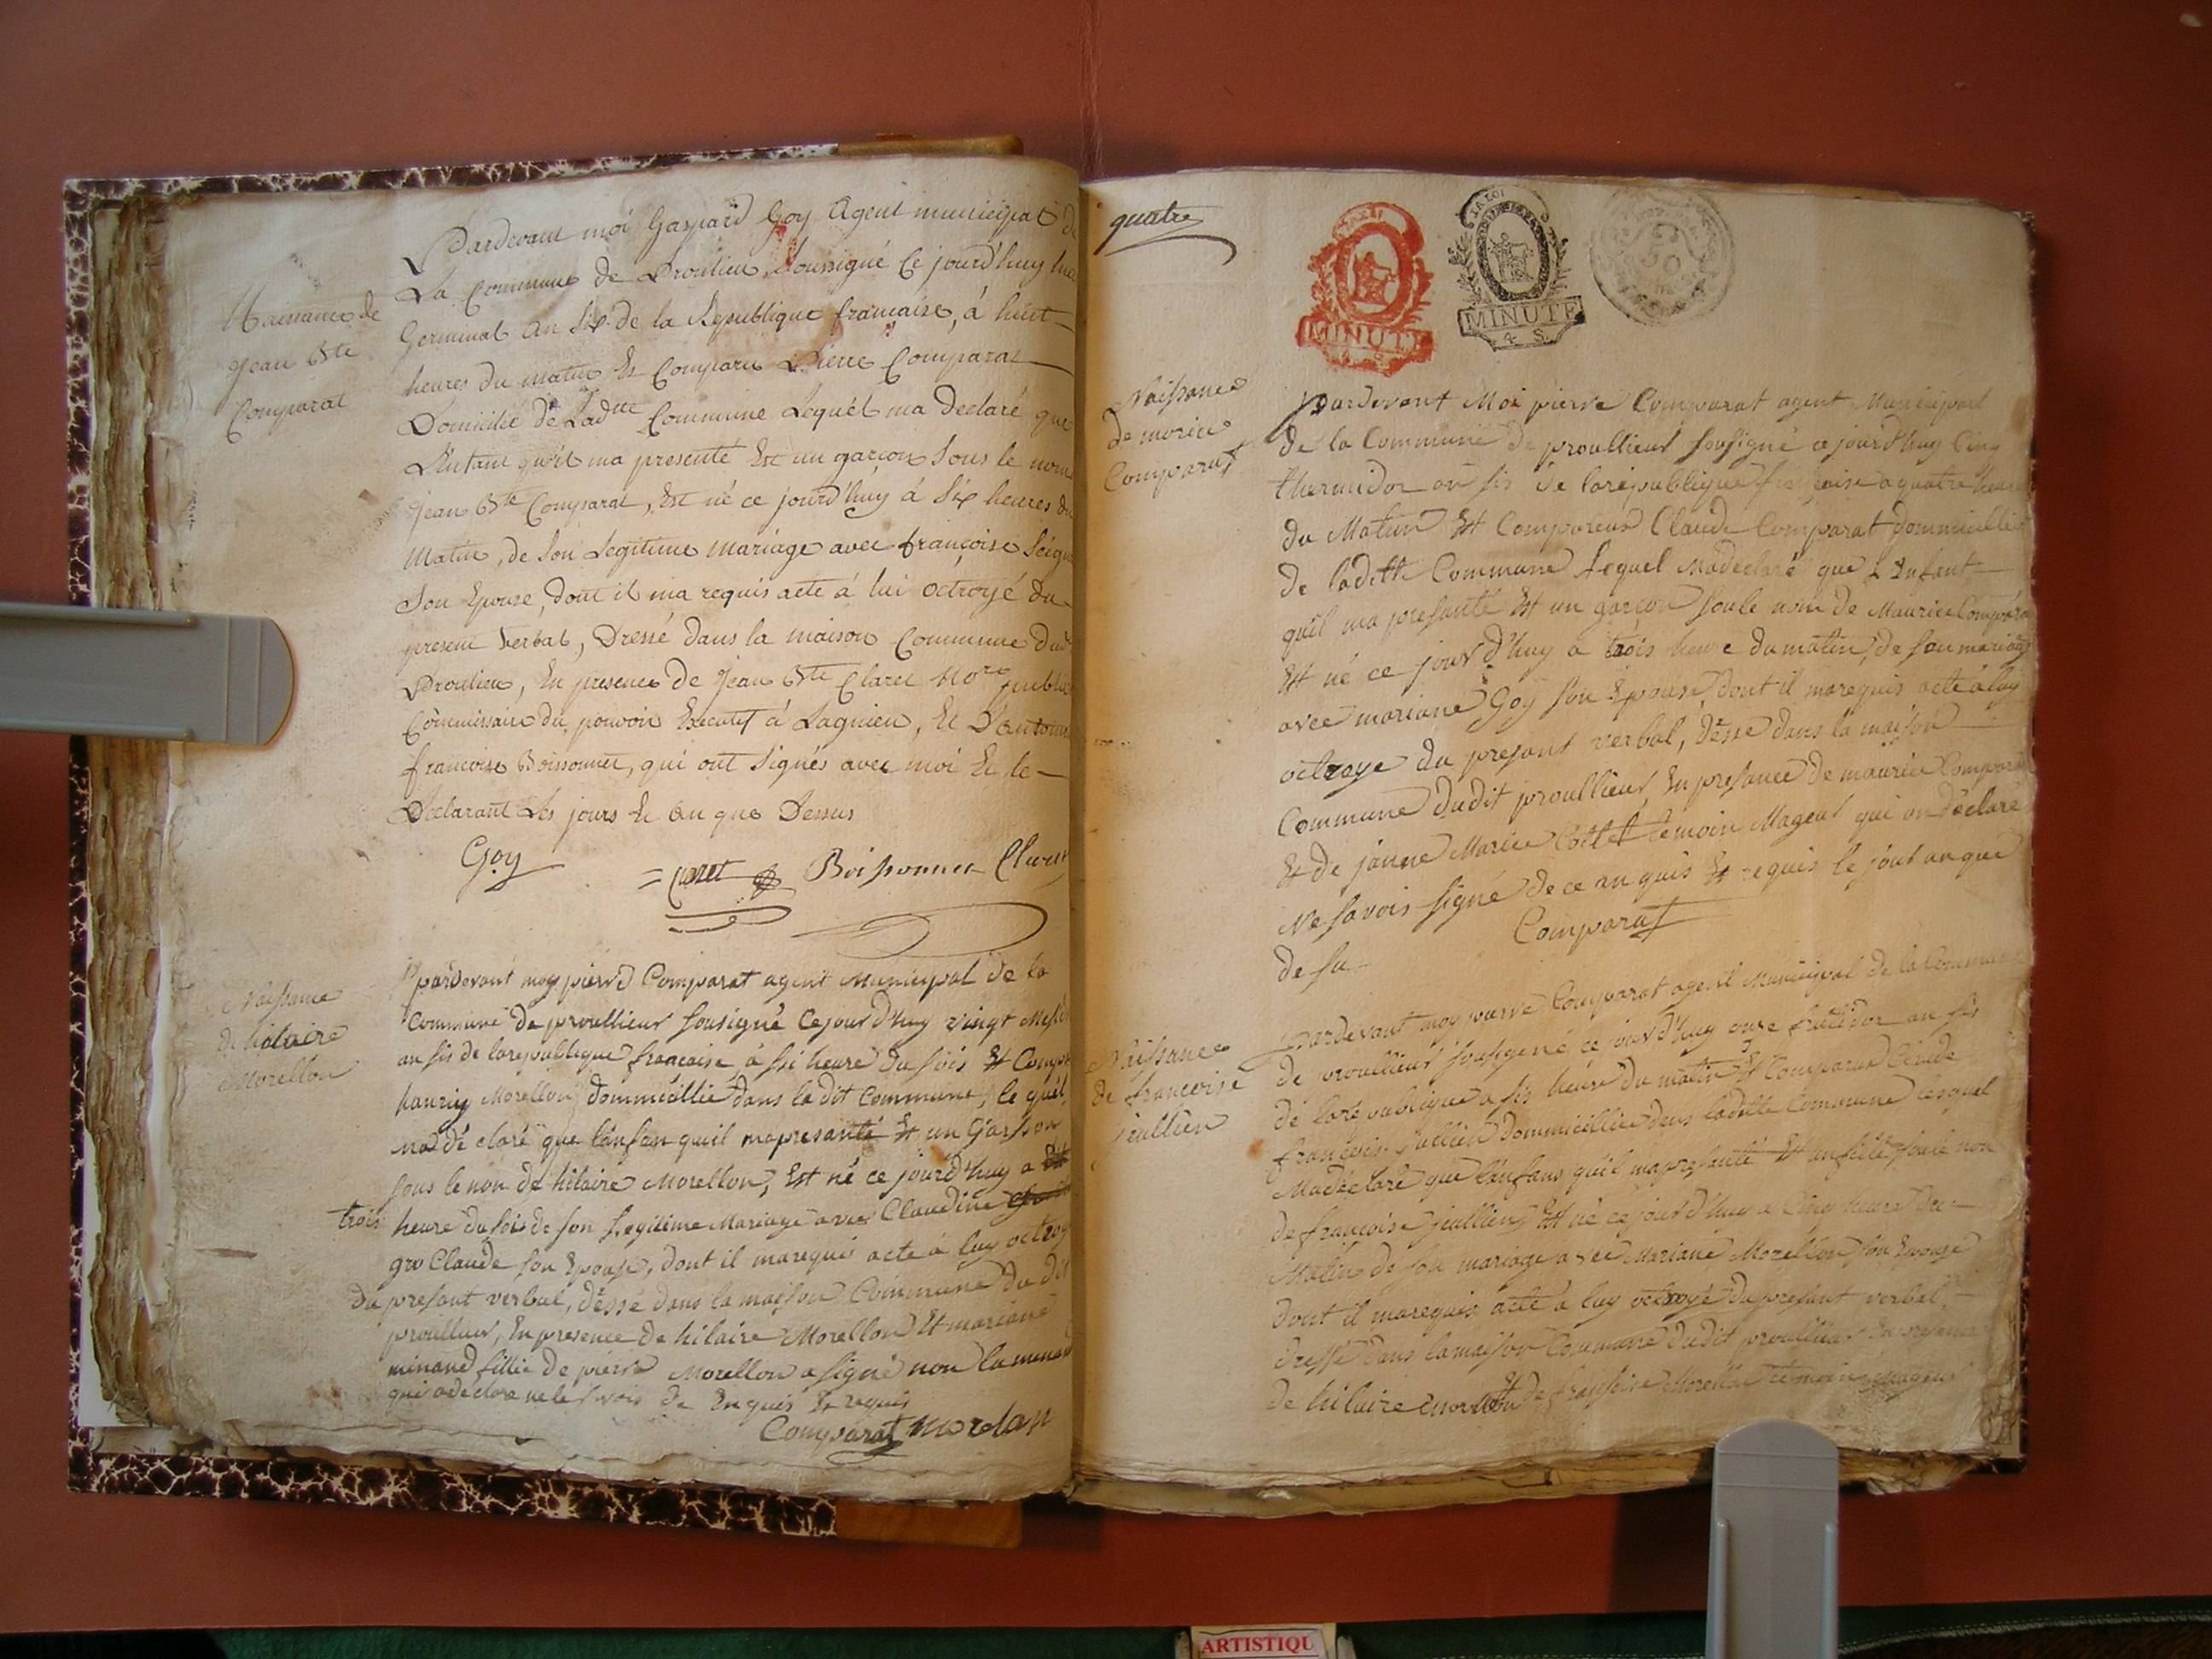 Naissance de
Jean Bte
Comparat
Pardevant moi Gaspard Goy Agent municipal de
La Commune de Proulieu, Soussigné Ce jourd'huy huit
Germinal an Six de la Republique francaise, á huit
heures du matin Est Comparu Pierre Comparat
Domicilié de Ladtte Commune Lequel ma Declaré que
L'Enfant qu'il ma presenté Est un garcon Sous le nom
Jean Bte Comparat, Est né ce jourd'huy á Six heures du
Matin, de Son Legitime Mariage avec françoise
Son Epouse, dont il ma requis acte á lui octroyé du
present Verbal, Dressé dans la maison Commune dud
Proulieu, En presence de Jean Bte Claret Nore public
Commissaire du pouvoir Executif á Lagnieu, Et D'antoine
francoise Boissonnet, qui ont Signés avec moi Et le
Declarant Les jours Et an que Dessus
Goy
Boissonnet Claret
Naissance
de hilaire
Morellon
pardevant moy pierre Comparat agent Municipal de la
Commune de proullieur sousigné Cejourd'huy vingt
an sis de larepublique francaise á sis heure du sois Et
Morellon dommicillié dans la dit Commune, le quél
ma dé claré que lánfan quil mapresanté Et un Garsson
sous le non de hilaire Morellon, Est né ce jourd'huy a
trois heure du sois de son Legitime Mariage avec Claudine
gro Claude son Epouse, dont il marequis acte á luy octroy
du presant verbal, dëssé dans la maison Commune du dit
proullieur, En presence de hilaire Morellon Et mariane
fillie de pierre Morellon a signé non la
qui adeclare ne le savois de Enquis Et requis
Comparat morelon
quatre
MINUTE
4. S.
LA LOI
MINUTE
4. S.
Naissance
de morice
Comparat
Pardevant Moi pierre Comparat agent Municipal
de la Commune de proullieur sousigné ce jourd'huy Cinq
thermidor an sis de larépublique francaise a quatre heure
du Matin Et Compareus Claude Comparat dommicillié
de laditte Commune Lequel Madeclaré que L Enfant
quil ma presanté Est un garcon soule nom de Maurice Comparat
Est né ce jourd'huy a trois heure du matin, de son mariage
avec mariane Goy son Epouse, dont il marequis acte á luy
octroye du presant verbal, dësse dans la maison
Commune dudit proullieur, En presance de maurice Comparat
Et de janne Marie Collet temoin Mageur qui on Déclaré
Ne savois signé de ce an quis Et requis le jour anque
de su
Comparat
Naissance
de francoise
jeullien
Pardevant moy pierre Comparat agent Municipal de la Commune
de proullieur sousigené ce jourd'huy onze frutidor an sis
dé laré publique a sis heure du matin Et Comparus Claude
françois Jullien dommicillié dans laditte Commune lesquel
Madéclaré que lánfans quil mapresanté Et un fille soule non
de françoise jeullien, Est né ce jourd'huy a Cinq heure du
Matin de son mariage avec Mariane Morellon son Epouse
dont il marequis acte á luy octroyé du presant verbal,
dressé dans lamaison Commune dudit proullieur En presance
de hilaire morellon Et de fransoise Morellon temoin Mageur
ARTISTIQU